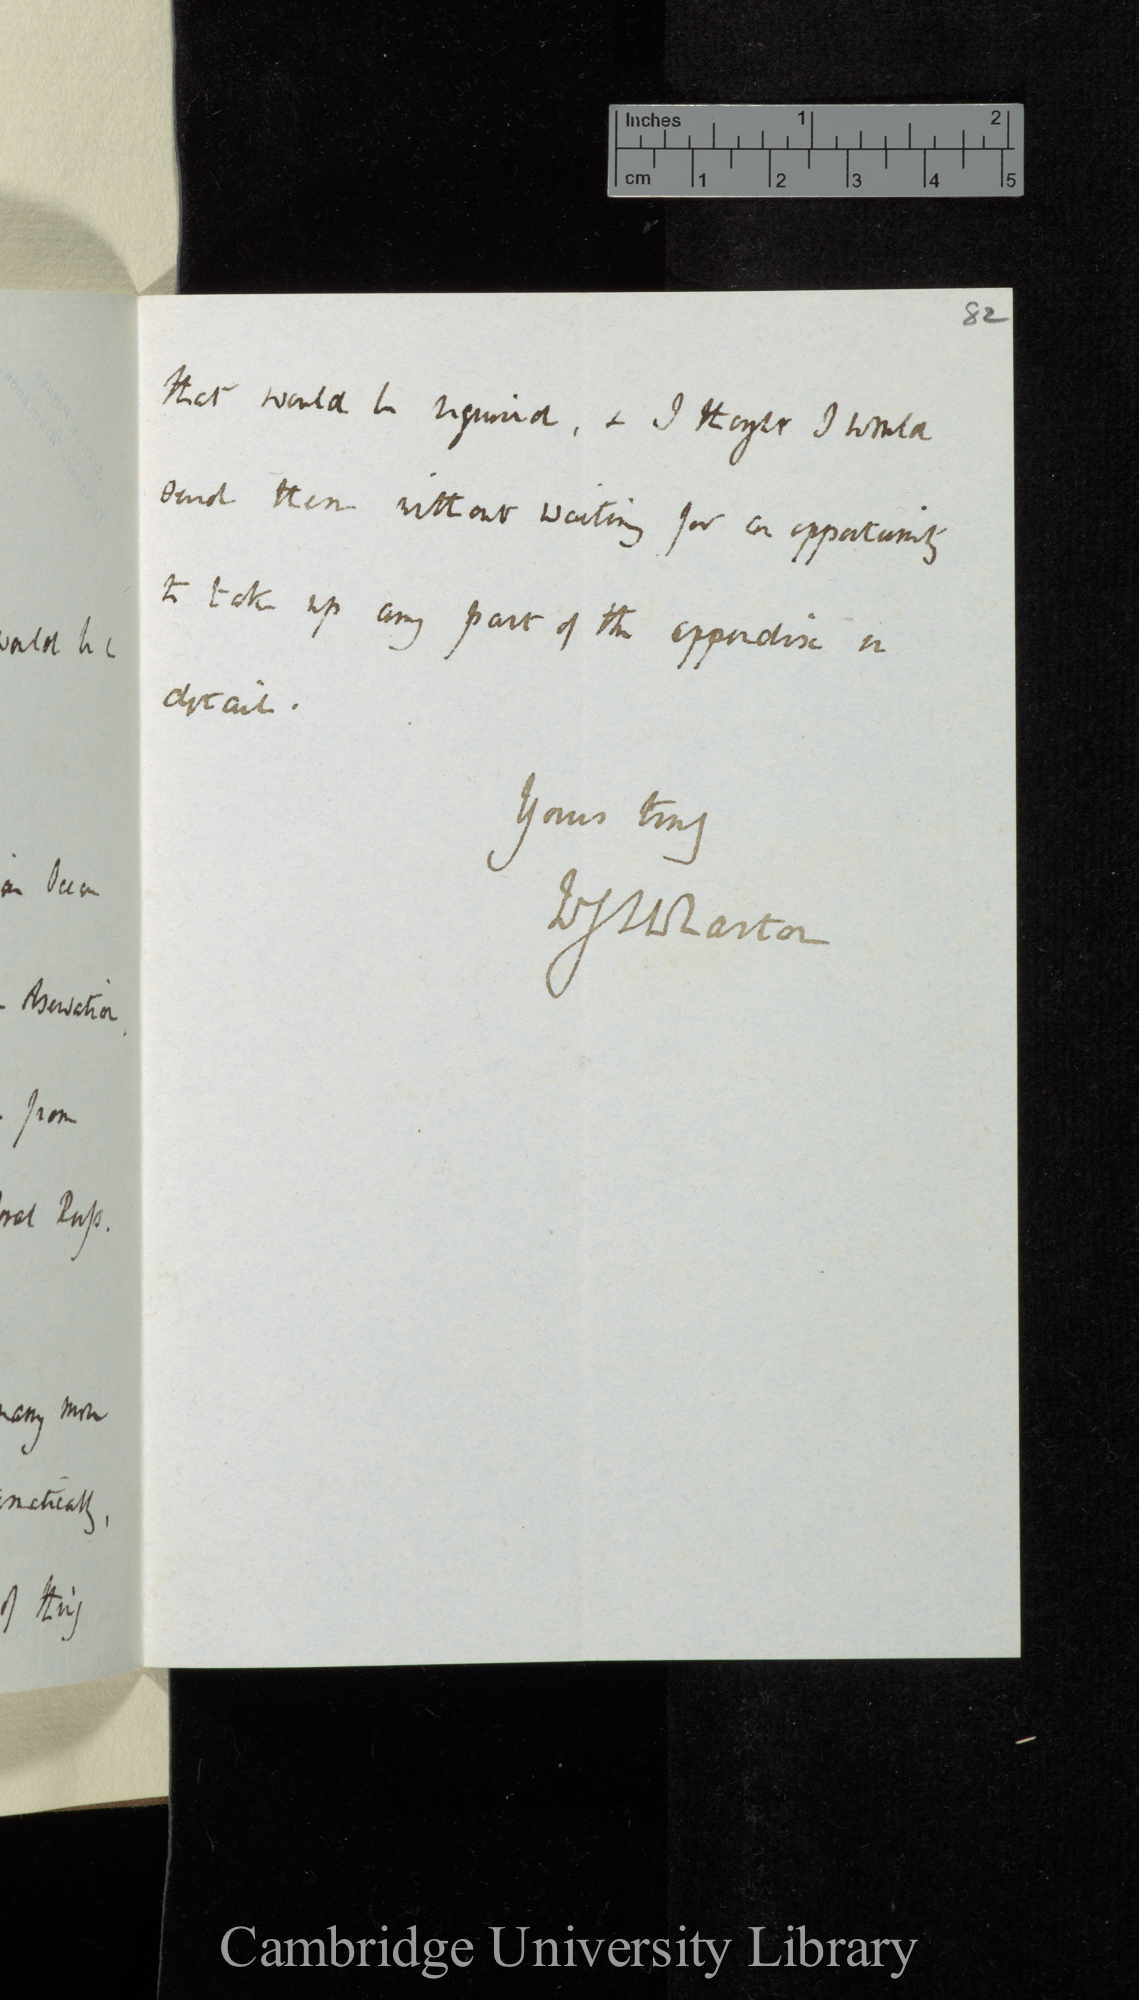 Inches 1 2
cm 1 2 3 4 5
82
that would be required, & I thought I would
send them without waiting for an opportunity
to take up any part of the appendix in
detail.
Yours truly
WJLWharton
would be
Ocean
from
Reefs.
many more
of this
Cambridge University Library